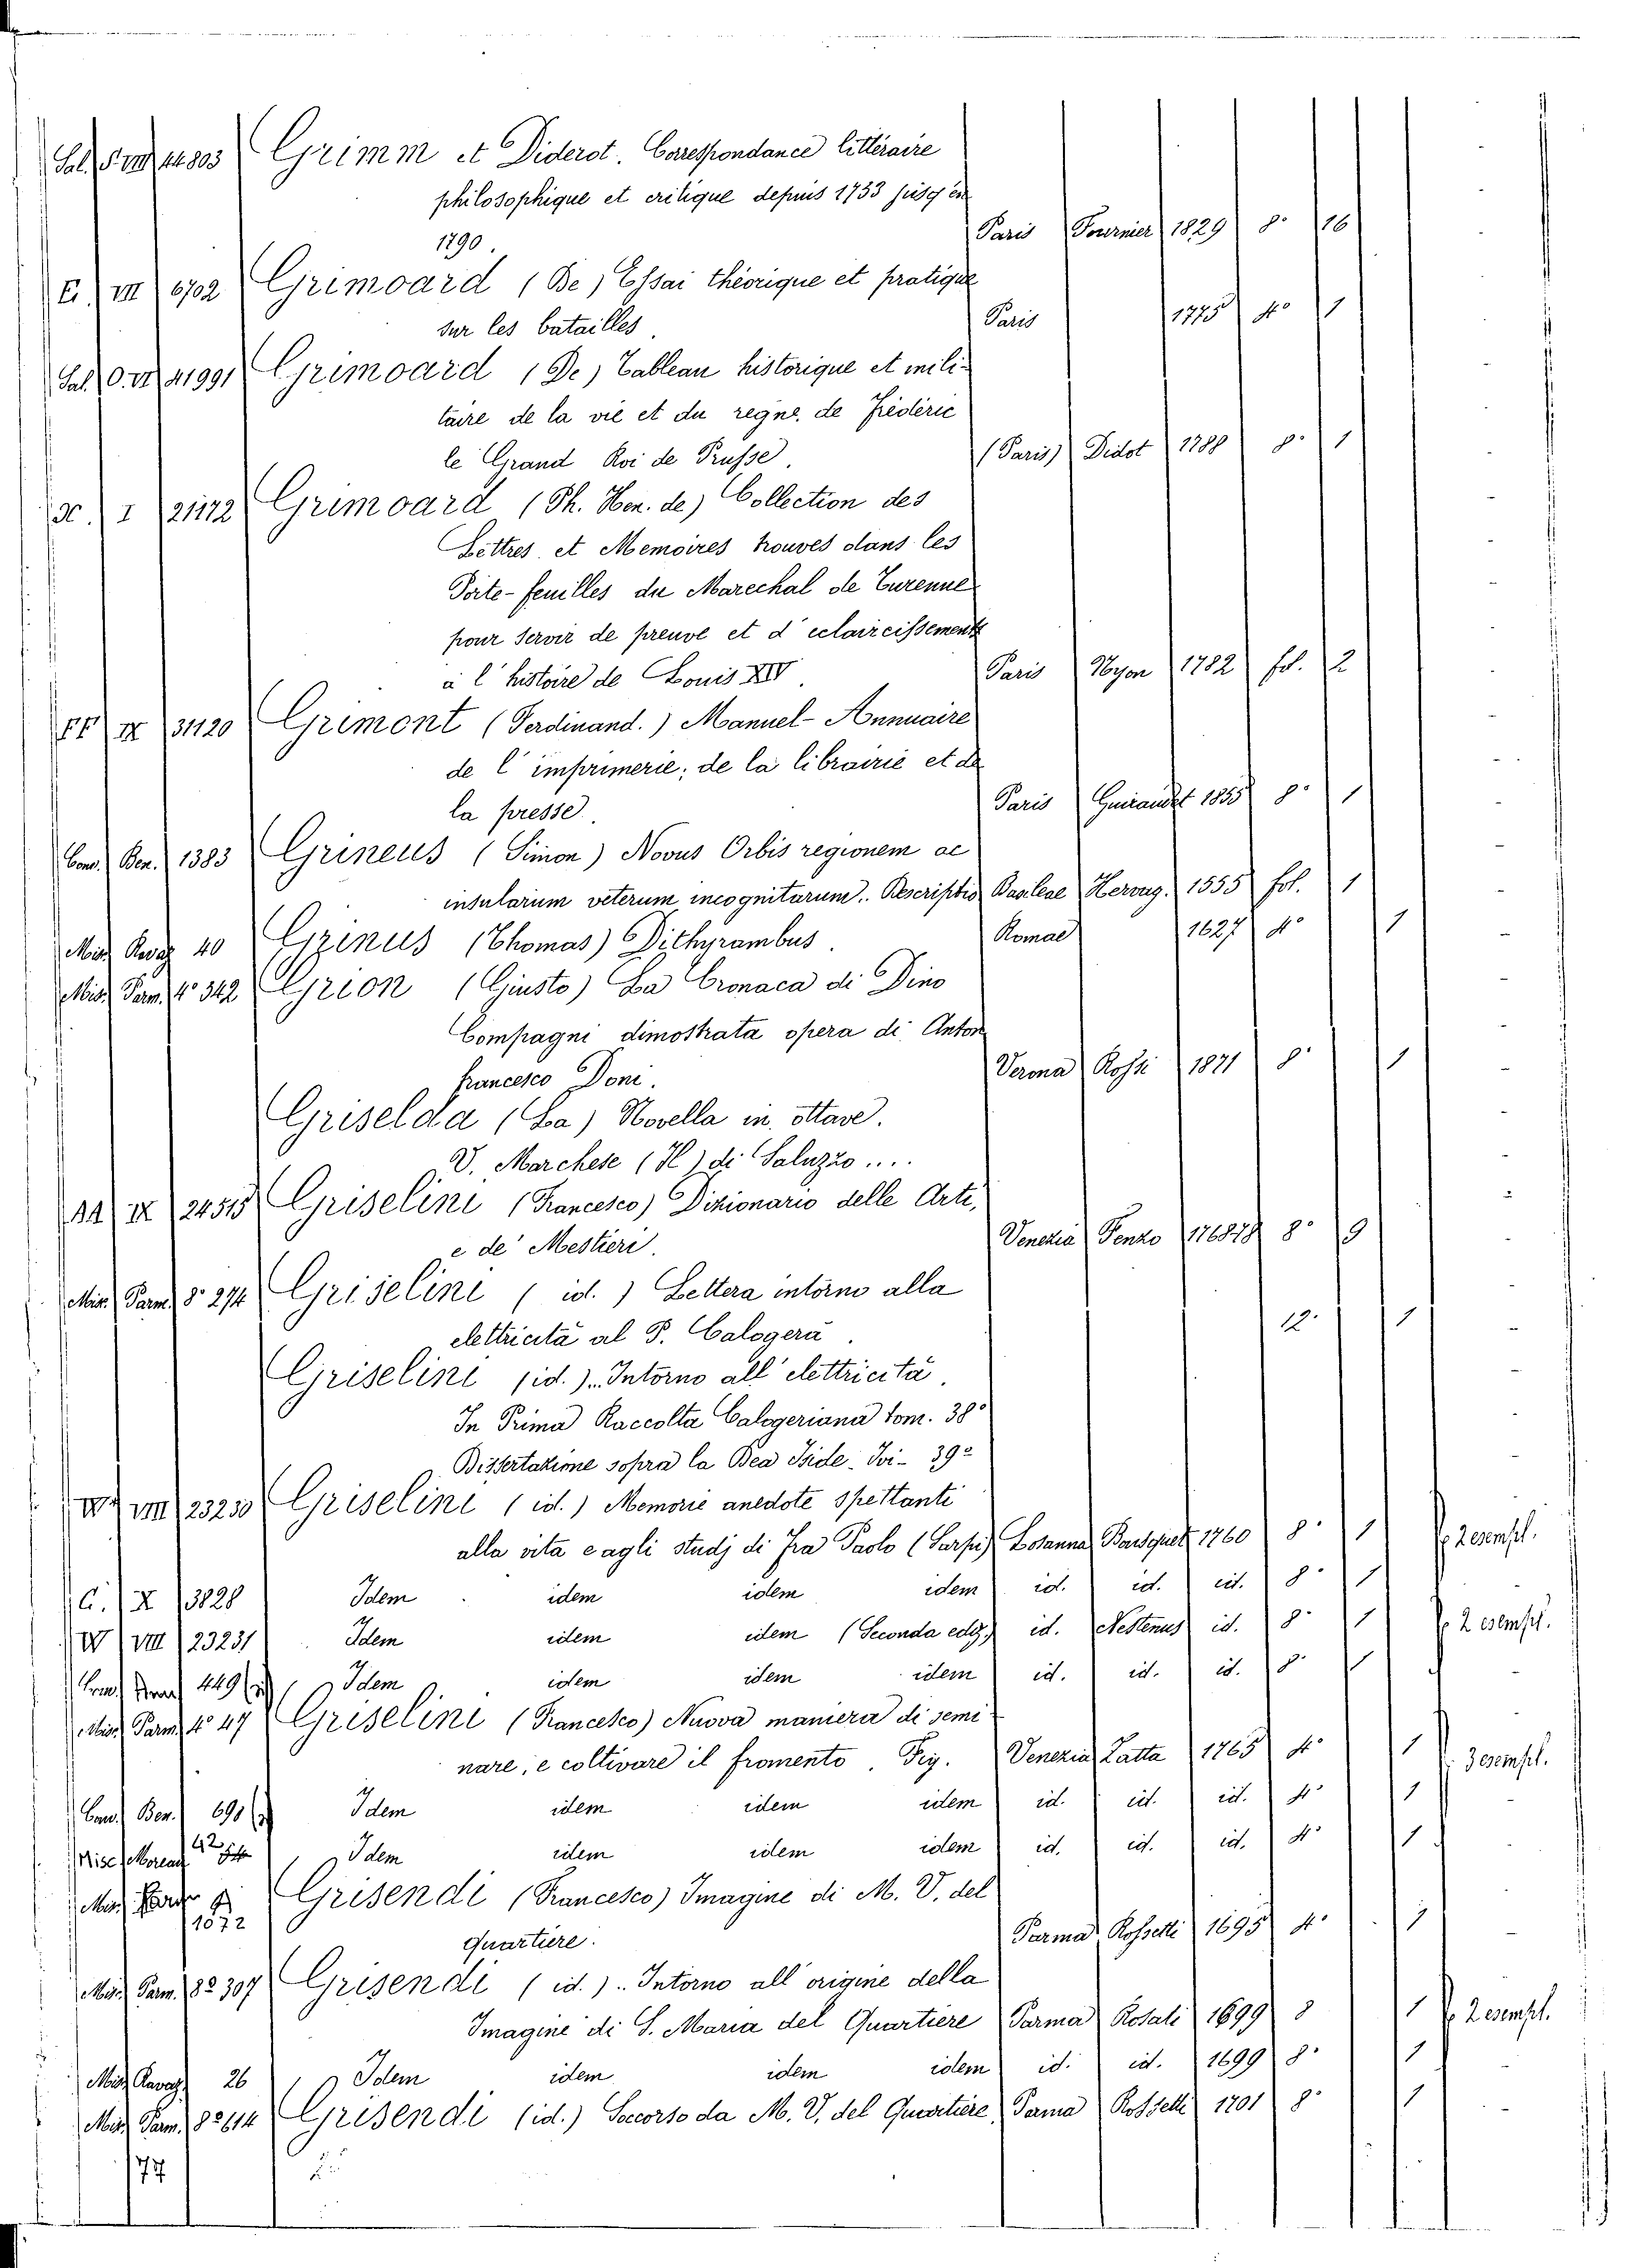 Sal. S. VIII 44803 Grimm et Diderot. Correspondance littéraire
philosophique et critique depuis 1753 jusq' en
1790. Paris Fournier 1829 8° 16
E VIII 6702 Grimoard (De) Essai théorique et pratique
sur les batailles. Paris 1775 4° 1
Sal. O. VI 41991 Grimoard (De) Tableau historique et mili-
taire de la vie et du regne de Fréderic
le Grand Roi de Prusse. (Paris) Didot 1788 8° 1
X I 21172 Grimoard (Ph. Hen. de) Collection des
Lettres et Memoires trouves dans les
Porte-feuilles du Marechal de Turenne
pour servir de preuve et d' eclaircissements
à l' histoire de Louis XIV. Paris Nyon 1782 fol. 2
FF IX 31120 Grimont (Ferdinand.) Manuel-Annuaire
de l' imprimerie, de la librairie et de
la presse. Paris Guiraudet 1855 8° 1
Cond. Ben. 1383 Grineus (Simon) Novus Orbis regionem ac
insularum veterum incognitarum.. Descriptio Basileae Hervag. 1555 fol. 1
Misc. Ravag 40 Grinus (Thomas) Dithyrambus. Romae 1627 4° 1
Misc. Parm. 4° 342 Grion (Giusto) La Cronaca di Dino
Compagni dimostrata opera di Anton
francesco Doni. Verona Rossi 1871 8° 1
Griselda (La) Novella in ottave.
V. Marchese (Il) di Saluzzo ....
AA IX 24515 Griselini (Francesco) Dizionario delle Arti,
e de' Mestieri. Venezia Fenzo 176878 8° 9
Misc. Parm. 8° 274 Griselini (id.) Lettera intorno alla
elettricità al P. Calogerà. 12° 1
Griselini (id.).. Intorno all' elettricità.
In Prima Raccolta Calogeriana tom. 38°
Dissertazione sopra la Dea Iside. Ivi- 39°
W VIII 23230 Griselini (id.) Memorie anedote spettanti
alla vita e agli studj di Fra Paolo (Sarpi) Losanna Bousquet 1760 8° 1 2 esempl.
C. X 3828 Idem idem idem idem id. id. id. 8° 1
W VIII 23231 Idem idem idem (Seconda ediz.) id. Nestenus id. 8° 1 2 esempl.
449 Idem idem idem idem id. id. id. 8° 1
Misc. Parm. 4° 47 Griselini (Francesco) Nuova maniera di semi-
nare, e coltivare il fromento. Fig. Venezia Zatta 1765 4° 1 3 esempl.
Cond. Ben. 690 Idem idem idem idem id. id. id. 4° 1
Misc. Moreau 42 Idem idem idem idem id. id. id. 4° 1
Misc. Grisendi (Francesco) Imagine di M. V. del
1072 quartiere. Parma Rossetti 1695 4° 1
Misc. Parm. 8° 307 Grisendi (id.).. Intorno all' origine della
Imagine di S. Maria del Quartiere Parma Rosati 1699 8 1 2 esempl.
Misc. Ravag 26 Idem idem idem idem id. id. 1699 8° 1
Misc. Parm. 8° 614 Grisendi (id.) Soccorso da M. V. del Quartiere Parma Rossetti 1701 8° 1
77